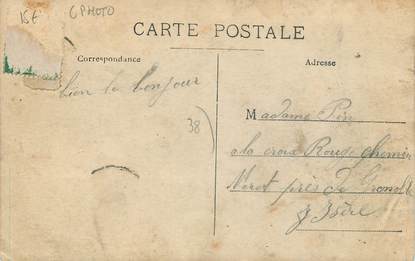 15€
6 PHOTO
CARTE POSTALE
Correspondance
Adresse
bien le bonjour
38
Madame
a la croix Rouge chemin
près de Grenoble
Isère